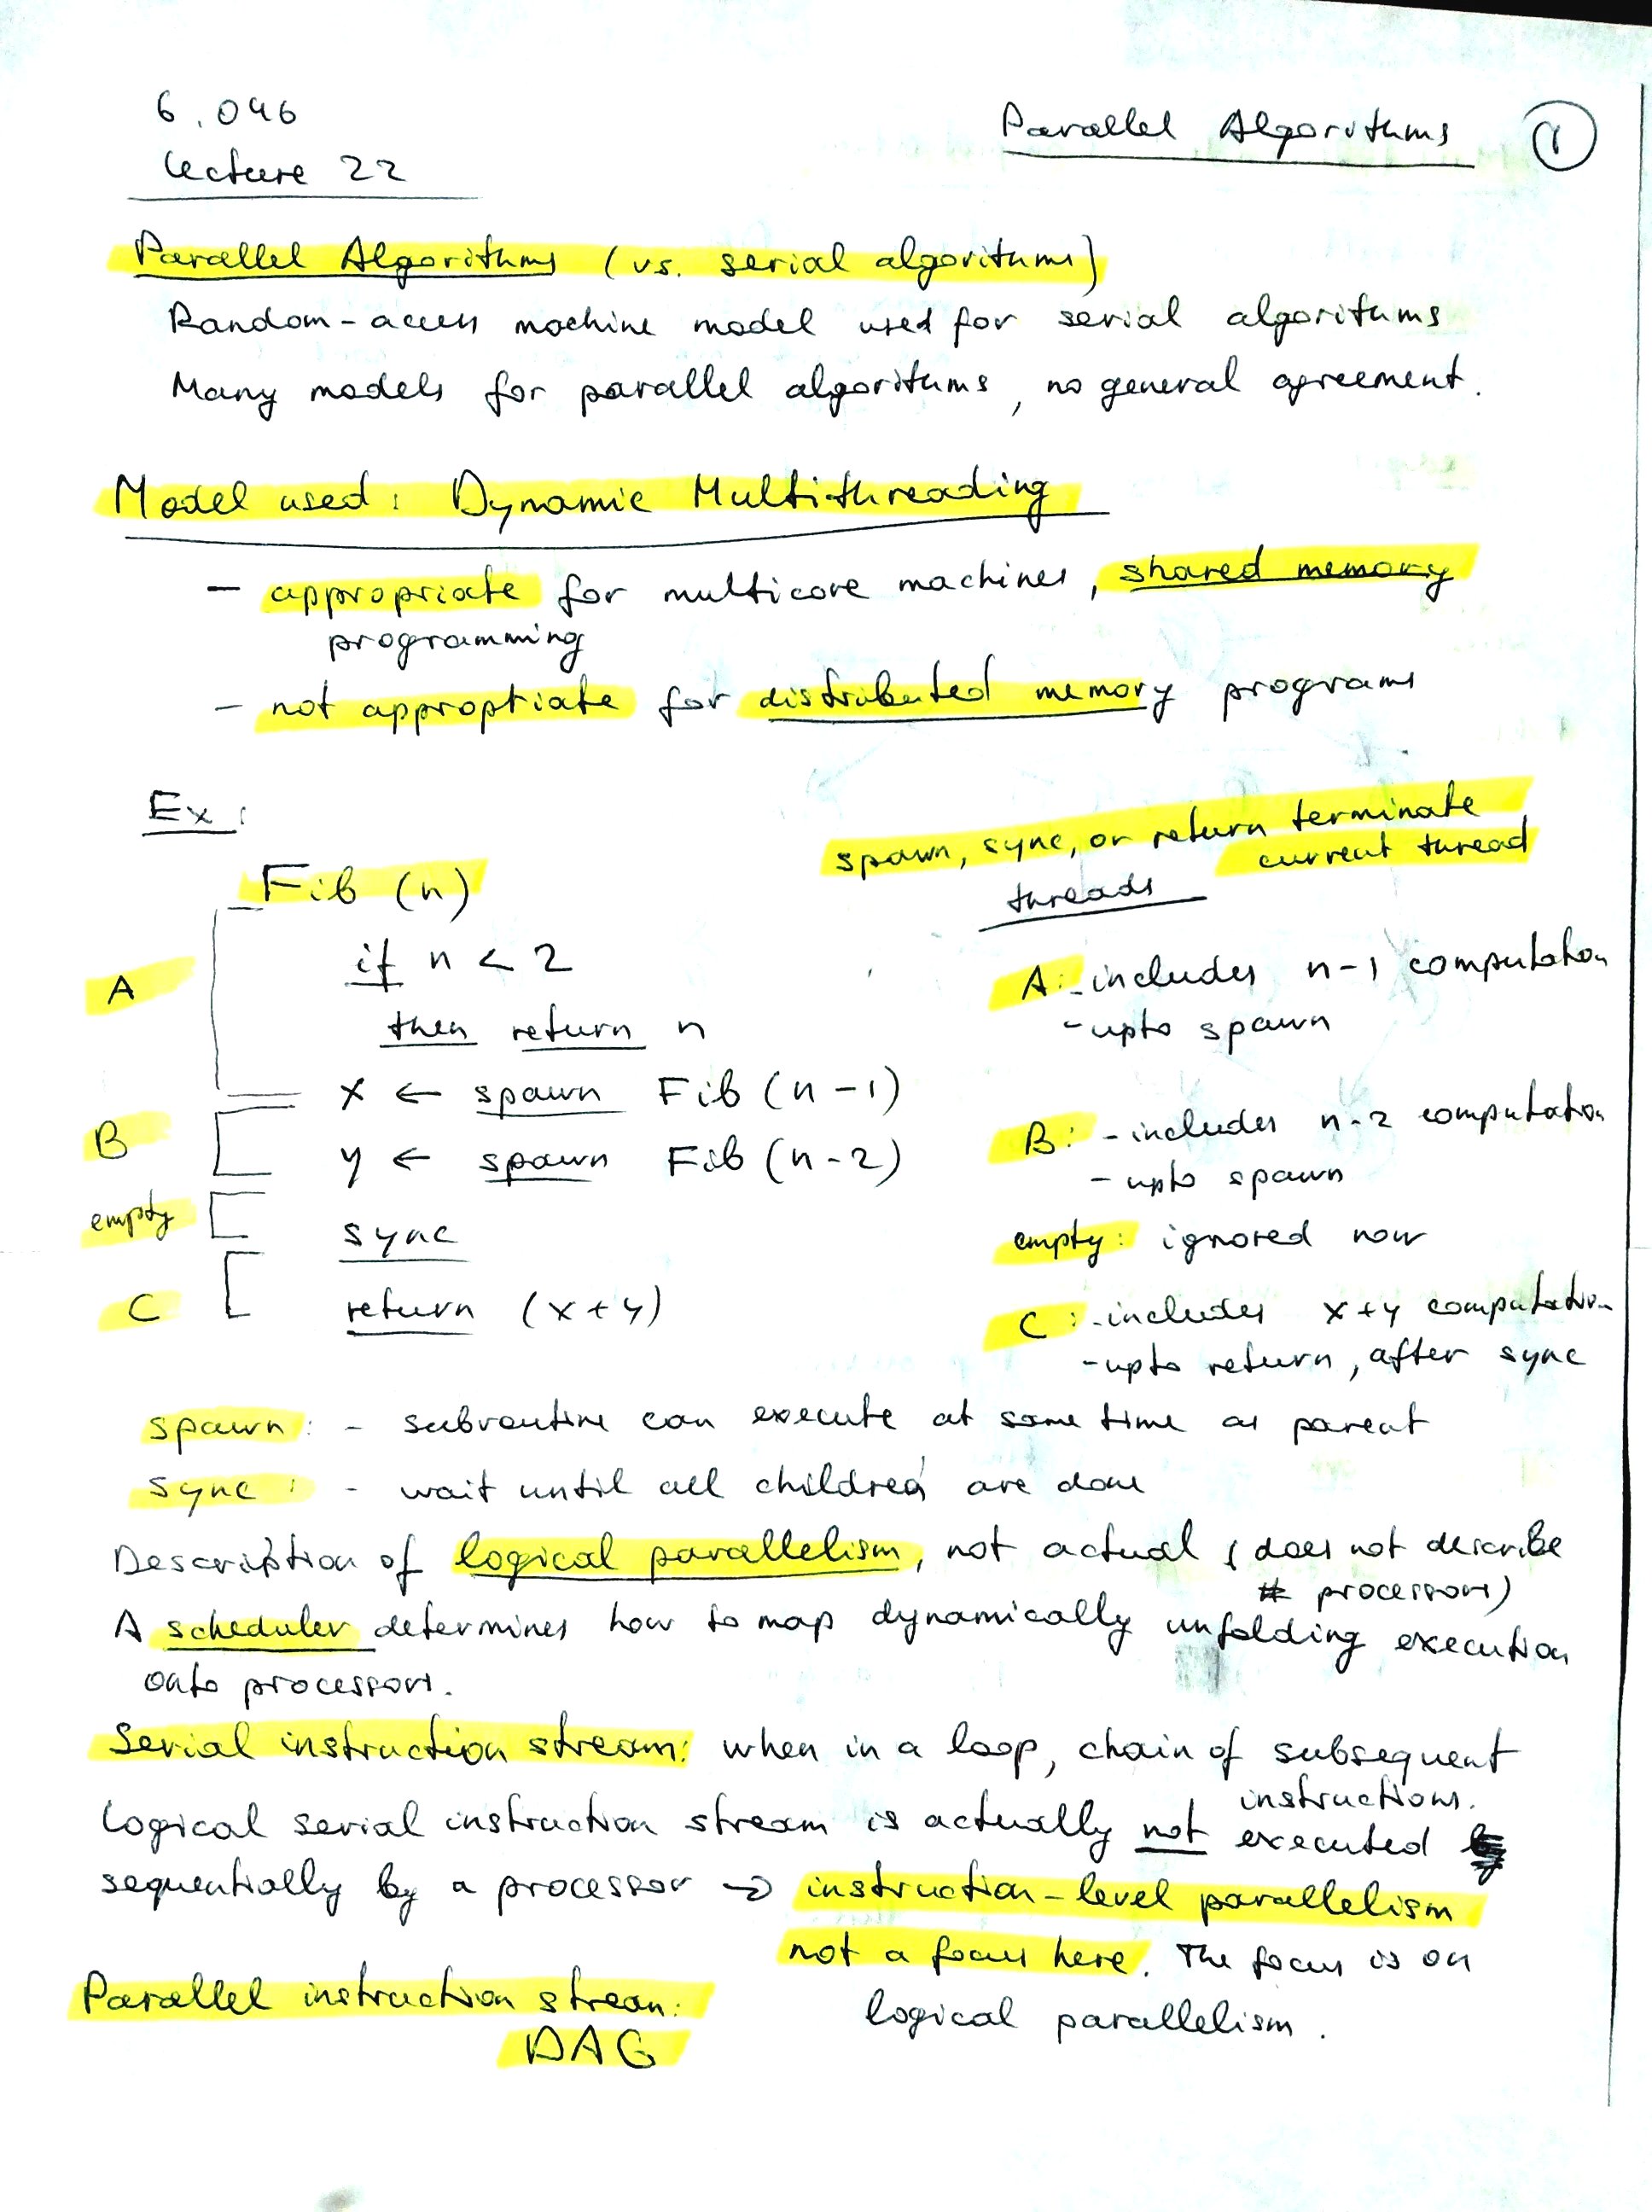 6.046
Lecture 22
Parallel Algorithms 1
Parallel Algorithms (vs. serial algorithms)
Random-access machine model used for serial algorithms
Many models for parallel algorithms, no general agreement.
Model used: Dynamic Multithreading
- appropriate for multicore machines, shared memory
programming
- not appropriate for distributed memory programs
Ex:
spawn, sync, or return terminate
current thread
Fib (n)
threads
A
if n < 2
then return n
A: - includes n-1 computation
- upto spawn
x ← spawn Fib (n-1)
B
y ← spawn Fib (n-2)
B: - includes n-2 computation
- upto spawn
empty
sync
empty: ignored now
C
return (x+y)
C: - includes x+y computation
- upto return, after sync
spawn: - subroutine can execute at same time as parent
sync: - wait until all children are done
Description of logical parallelism, not actual (does not describe
# processors)
A scheduler determines how to map dynamically unfolding execution
onto processors.
Serial instruction stream: when in a loop, chain of subsequent
instructions.
Logical serial instruction stream is actually not executed
sequentially by a processor → instruction-level parallelism
not a focus here. The focus is on
logical parallelism.
Parallel instruction stream:
DAG